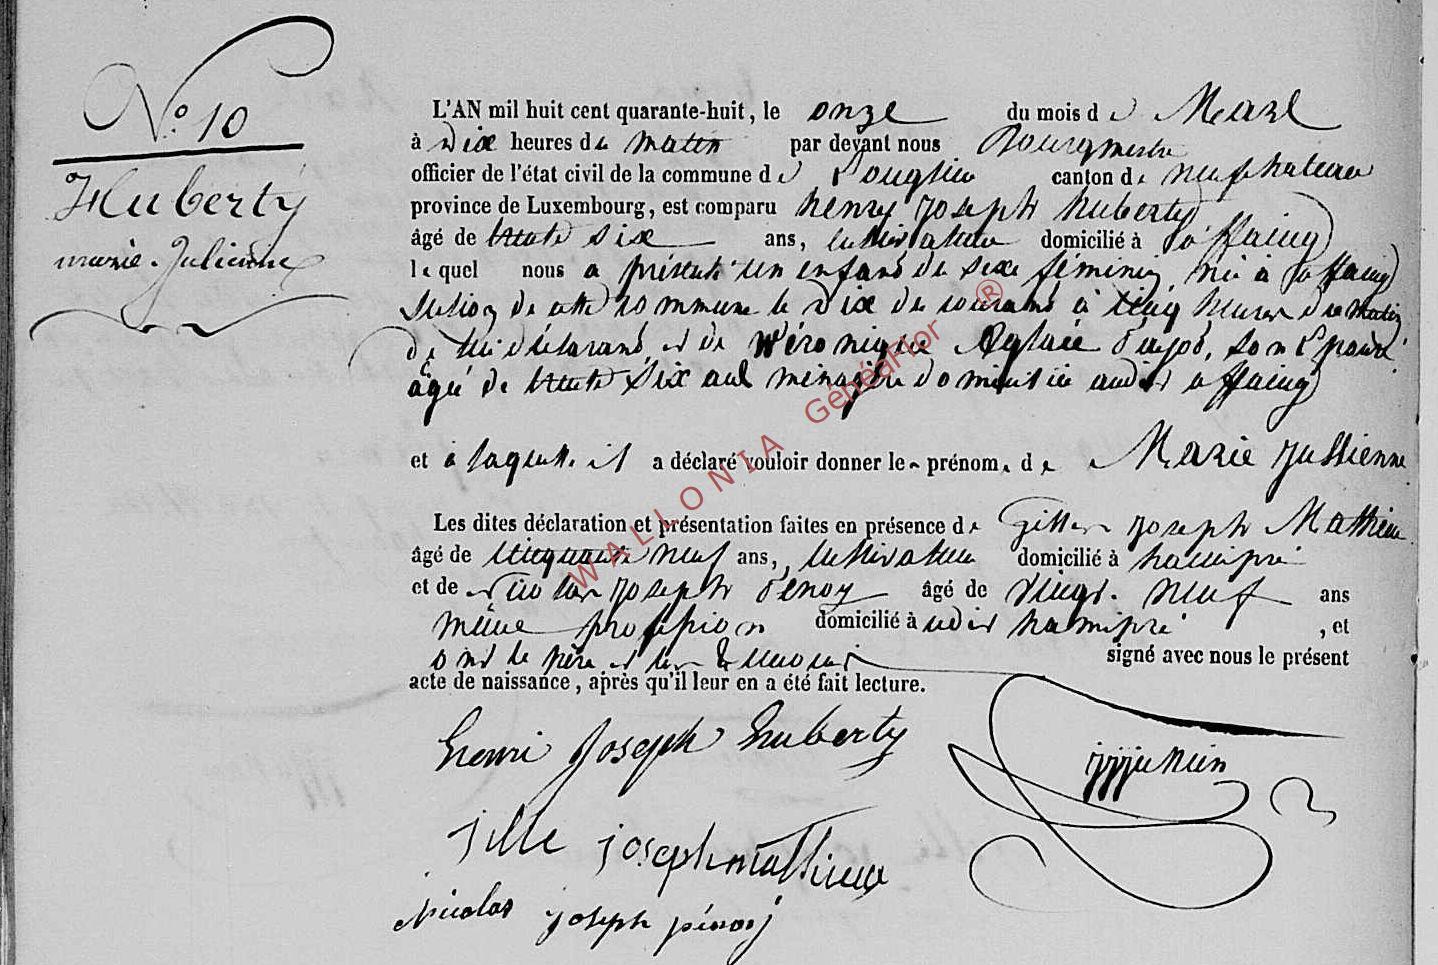 N° 10
Huberty
marie-Julienne
L'AN mil huit cent quarante-huit, le onze du mois de Mars
à dix heures du matin par devant nous Bourgmestre
officier de l'état civil de la commune de Longlier canton de neufchateau
province de Luxembourg, est comparu henry joseph huberty
âgé de trente six ans, cultivateur domicilié à offaing
lequel nous a présenté un enfant de sexe féminin né à offaing
section de cette commune le dix du courant à cinq heures du matin
de lui déclarant, et de véronique Aglaée son Epouse
agée de trente six ans ménagère domiciliée audit offaing
et à laquelle il a déclaré vouloir donner le prénom de Marie jullienne
Les dites déclaration et présentation faites en présence de Gille joseph Mathieu
âgé de cinquante neuf ans, cultivateur domicilié à hamipré
et de Nicolas joseph penoy âgé de vingt neuf ans
même profession domicilié à udit hamipré , et
ont le père et les témoins signé avec nous le présent
acte de naissance, après qu'il leur en a été fait lecture.
henri joseph huberty
jille joseph mathieux
Nicolas joseph pénoy
WALLONIA GénéaFlor ®